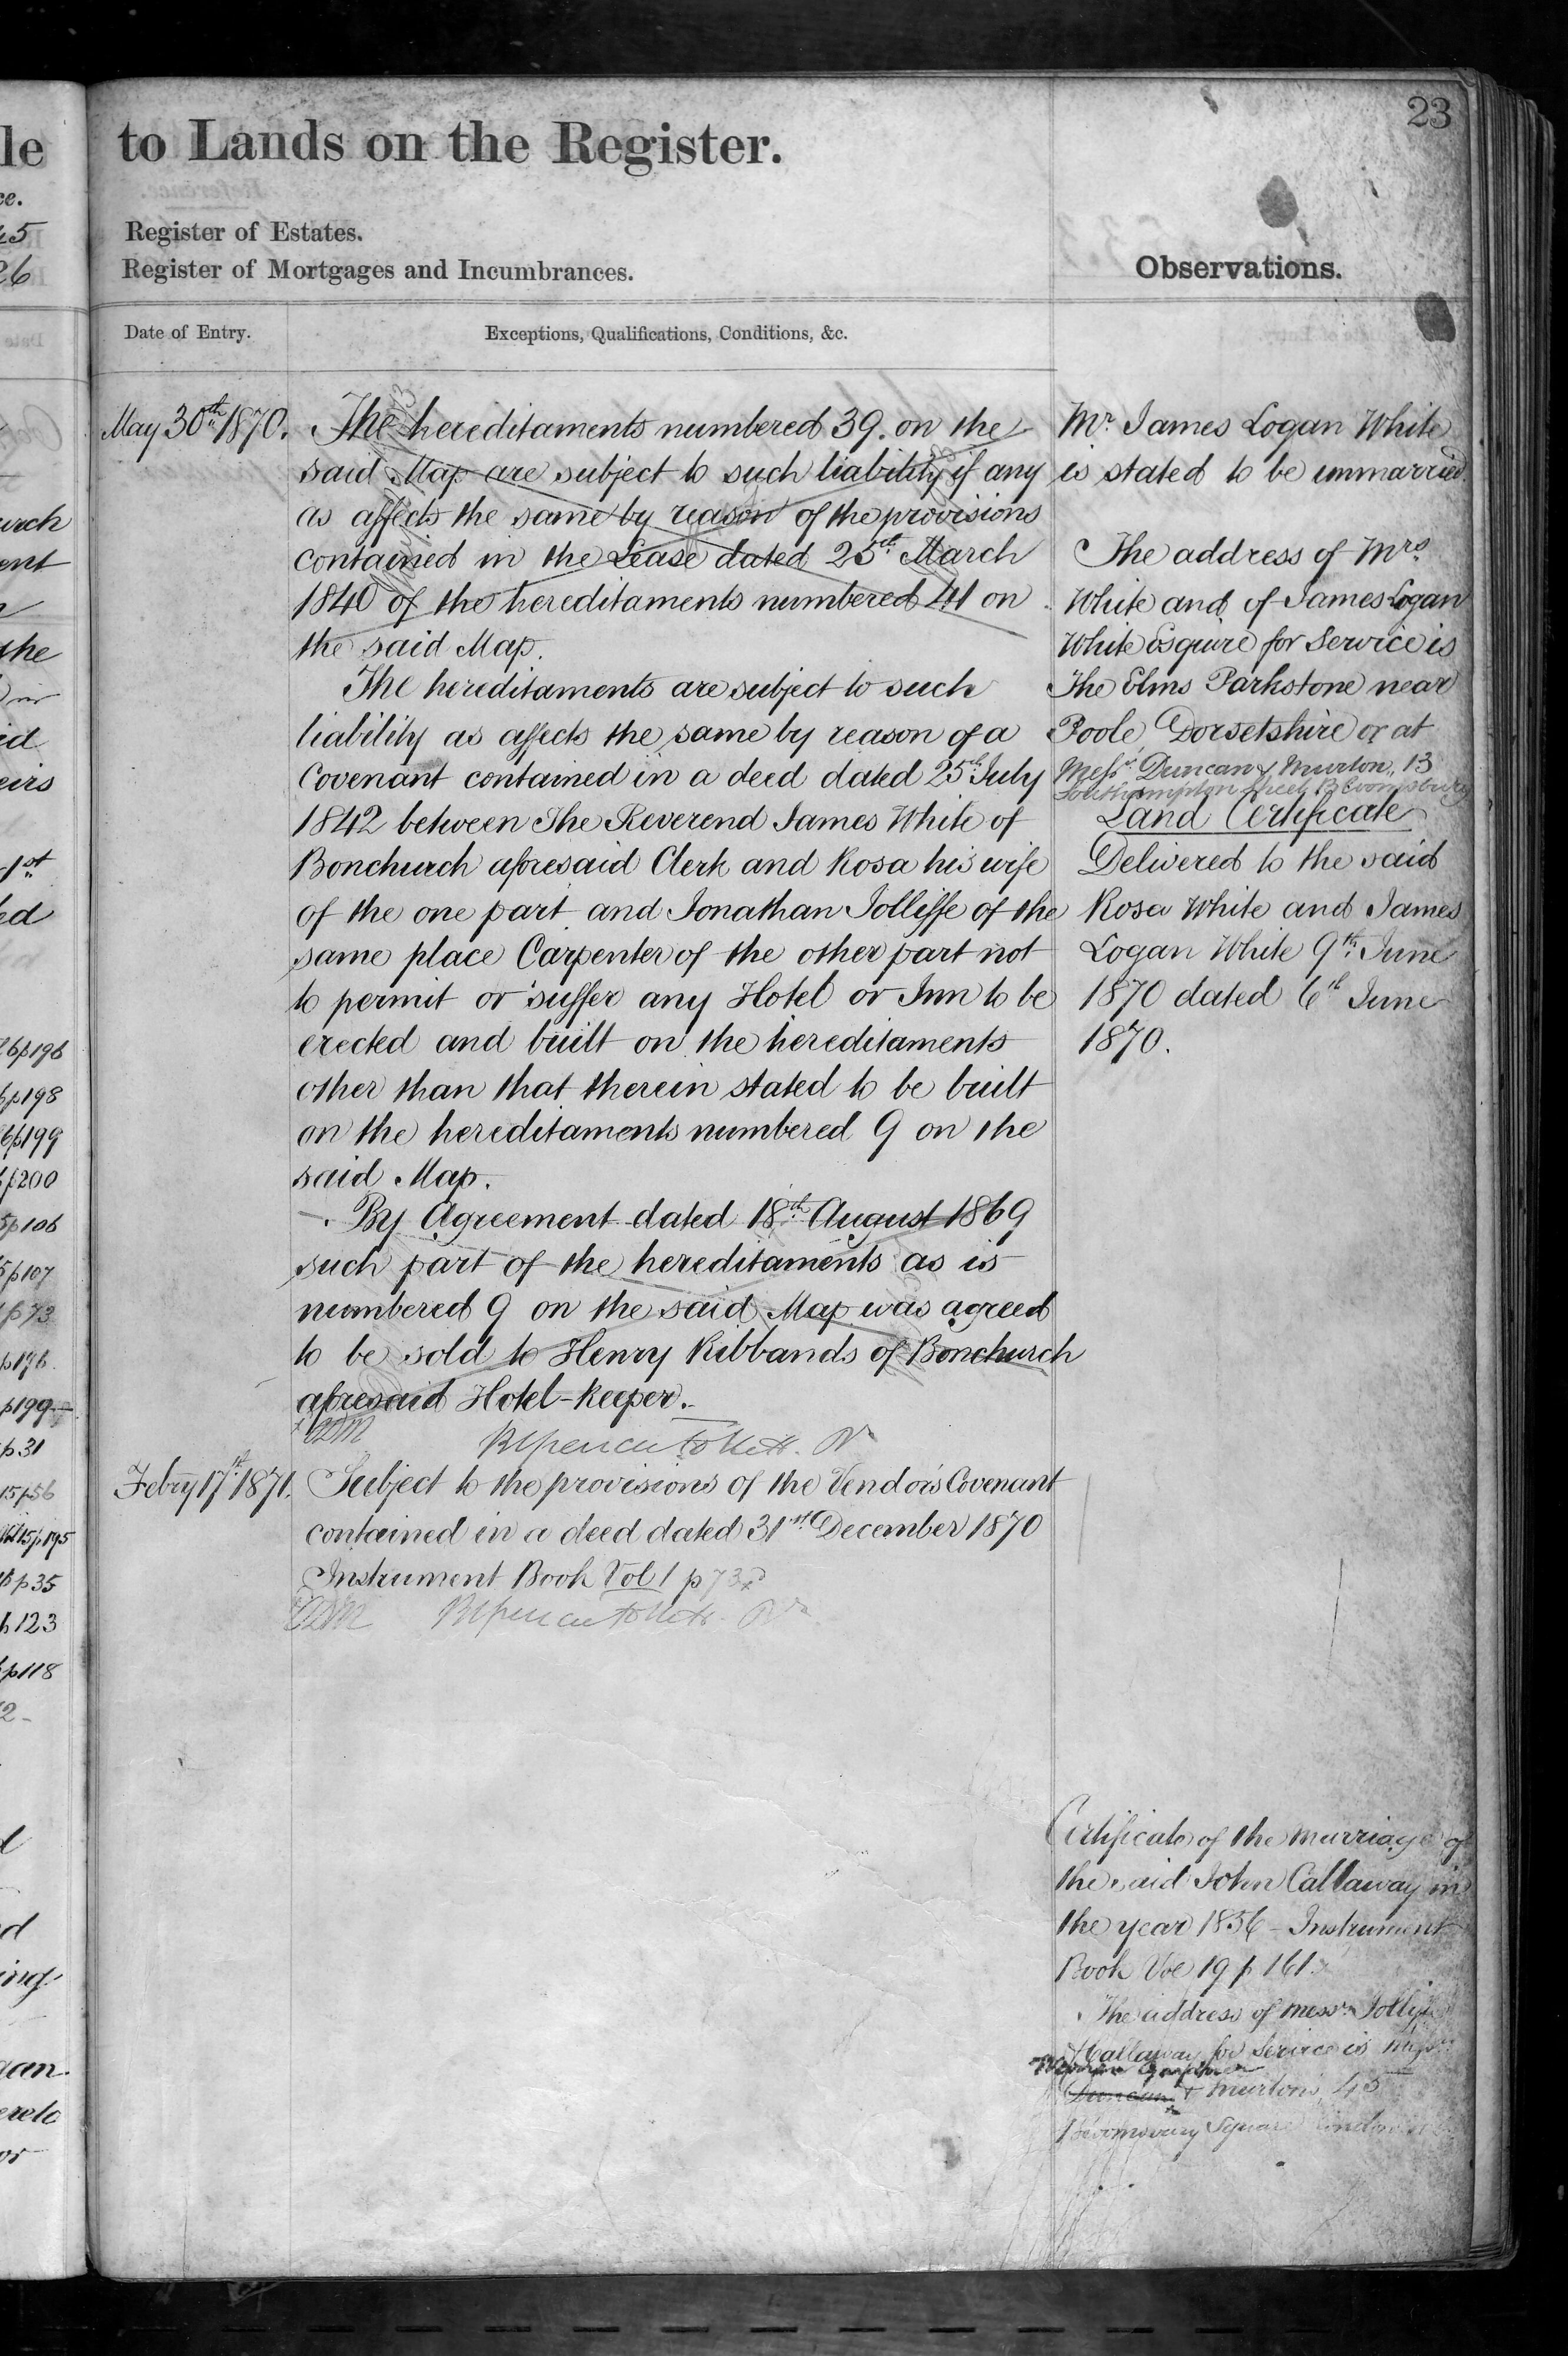 23
to Lands on the Register.
Register of Estates.
Register of Mortgages and Incumbrances.
Observations.
Date of Entry.
Exceptions, Qualifications, Conditions, &c.
May 30th 1870.
The hereditaments numbered 39. on the
said Map are subject to such liability if any
as affects the same by reason of the provisions
contained in the Lease dated 25th March
1840 of the hereditaments numbered 41 on
the said Map.
The hereditaments are subject to such
liability as affects the same by reason of a
Covenant contained in a deed dated 25th July
1842 between The Reverend James White of
Bonchurch aforesaid Clerk and Rosa his wife
of the one part and Jonathan Jolliffe of the
same place Carpenter of the other part not
to permit or suffer any Hotel or Inn to be
erected and built on the hereditaments
other than that therein stated to be built
on the hereditaments numbered 9 on the
said Map.
By Agreement dated 18th August 1869
such part of the hereditaments as is
numbered 9 on the said Map was agreed
to be sold to Henry Ribbands of Bonchurch
aforesaid Hotel-keeper.
Febry 17th 1871.
Subject to the provisions of the Vendors Covenant
contained in a deed dated 31st December 1870
Instrument Book Vol 1 p 73
Mr. James Logan White
is stated to be unmarried
The address of Mrs.
White and of James Logan
White Esquire for Service is
The Elms Parkstone near
Poole Dorsetshire or at
Messrs. Duncan & Murton, 13
Southampton Street Bloomsbury
Land Certificate
Delivered to the said
Rosa White and James
Logan White 9th June
1870 dated 6th June
1870.
Certificate of the marriage of
the said John Callaway in
the year 1856 - Instrument
Book Vol 19 p 161
The address of Messrs
Callaway for Service is Messrs
Duncan & Murton's, 45
Bloomsbury Square London
le
ce.
45
26
urch
ent
the
id
eirs
1st
ed
6p196
p198
6p199
p200
5p106
5p107
p73
p196
p199
p31
15p56
15p195
p35
p123
p118
2
d
ing
gan
ereto
or